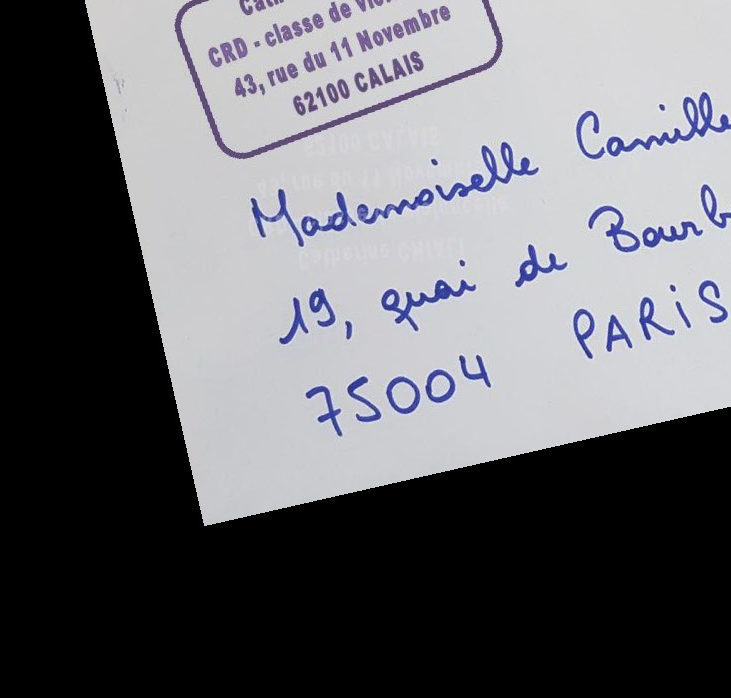 CRD - classe de
43, rue du 11 Novembre
62100 CALAIS
Mademoiselle Camille
19, quai de Bourb
75004 PARIS